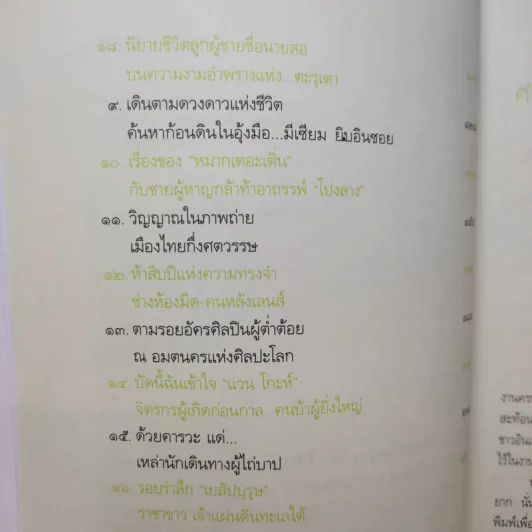 ๑๘. นิยายชีวิตลูกผู้ชายชื่อนายสอ
บนความงามอำพรางแห่ง...ตะรุเตา
๙. เดินตามดวงดาวแห่งชีวิต
ค้นหาก้อนดินในอุ้งมือ...มีเซียม ยิบอินซอย
๑๐. เรื่องของ "หมากเตอะเติ่น"
กับชายผู้หาญกล้าท้าอาถรรพ์ "โปงลาง"
๑๑. วิญญาณในภาพถ่าย
เมืองไทยกึ่งศตวรรษ
๑๒. ห้าสิบปีแห่งความทรงจำ
ช่างห้องมืด-คนหลังเลนส์
๑๓. ตามรอยอัครศิลปินผู้ต่ำต้อย
ณ อมตนครแห่งศิลปะโลก
๑๔. บัดนี้ฉันเข้าใจ "แวน โกะห์"
จิตรกรผู้เกิดก่อนกาล คนบ้าผู้ยิ่งใหญ่
๑๕. ด้วยคารวะ แด่...
เหล่านักเดินทางผู้ไถ่บาป
๑๖. รอยรำลึก "เยสัปบุรุษ"
ราชาชาว เจ้าแผ่นดินทะเลใต้
งานคร
สะท้อน
ชาวอินเ
ไว้ในงาน
ยาก นั่น
พิมพ์เพื่อ